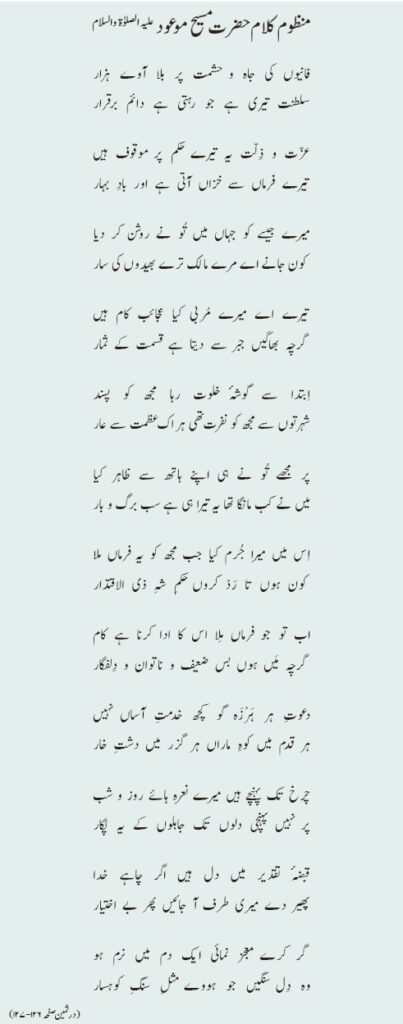 منظوم کلام حضرت مسیح موعود علیہ الصلوٰۃ والسلام
فانیوں کی جاہ و حشمت پر بلا آوے ہزار
سلطنت تیری ہے جو رہتی ہے دائم برقرار
عزّت و ذِلّت یہ تیرے حکم پر موقوف ہیں
تیرے فرماں سے خزاں آتی ہے اور بادِ بہار
میرے جیسے کو جہاں میں تُو نے روشن کر دیا
کون جانے اے مرے مالک ترے بھیدوں کی سار
تیرے اے میرے مُربی کیا عجائب کام ہیں
گرچہ بھاگیں جبر سے دیتا ہے قسمت کے ثمار
اِبتدا سے گوشۂ خلوت رہا مجھ کو پسند
شہرتوں سے مجھ کو نفرت تھی ہر اک عظمت سے عار
پر مجھے تُو نے ہی اپنے ہاتھ سے ظاہر کیا
میں نے کب مانگا تھا یہ تیرا ہی ہے سب برگ و بار
اِس میں میرا جُرم کیا جب مجھ کو یہ فرماں ملا
کون ہوں تا رَدّ کروں حکمِ شہِ ذی الاقتدار
اب تو جو فرماں مِلا اس کا ادا کرنا ہے کام
گرچہ مَیں ہوں بس ضعیف و ناتوان و دِلفگار
دعوتِ ہر ہَرْزَہ گو کچھ خدمتِ آساں نہیں
ہر قدم میں کوہِ ماراں ہر گزر میں دشتِ خار
چرخ تک پہنچے ہیں میرے نعرہ ہائے روز و شب
پر نہیں پہنچی دلوں تک جاہلوں کے یہ پُکار
قبضۂ تقدیر میں دل ہیں اگر چاہے خدا
پھیر دے میری طرف آ جائیں پھر بے اختیار
گر کرے معجز نمائی ایک دم میں نرم ہو
وہ دِل سنگیں جو ہووے مثلِ سنگِ کوہسار
(درثمین صفحہ ۱۲۶-۱۲۷)